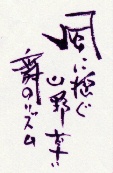 風に極ぐ
山野草に
舞のリズム